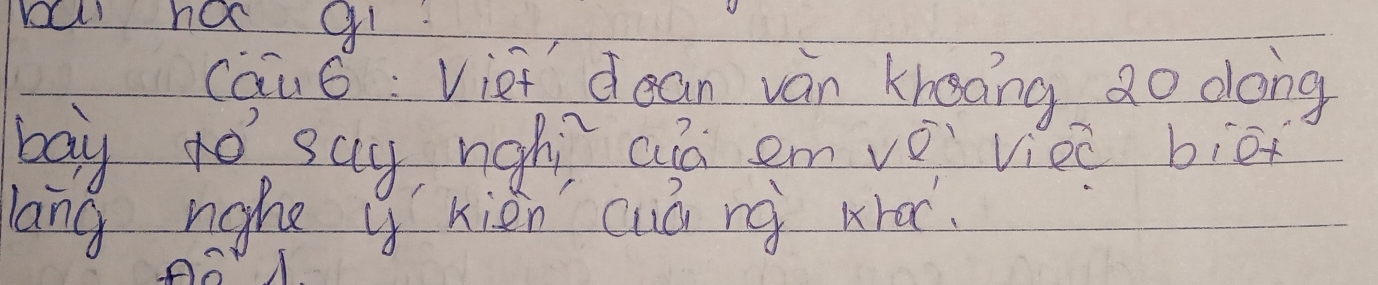 bài học gì?
Câu 6: Viết đoạn văn khoảng 20 dòng
bày tỏ suy nghĩ của em về việc biết
lắng nghe ý kiến của ng` khác.
Đề 1.